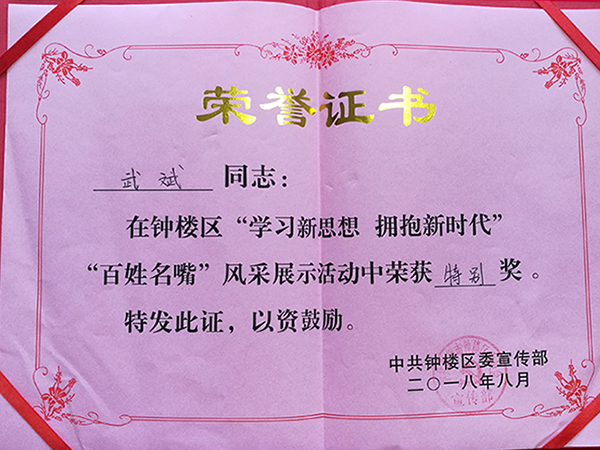 荣誉证书
武斌 同志：
在钟楼区“学习新思想 拥抱新时代”
“百姓名嘴”风采展示活动中荣获 特别 奖。
特发此证，以资鼓励。
中共钟楼区委宣传部
二〇一八年八月
宣传部